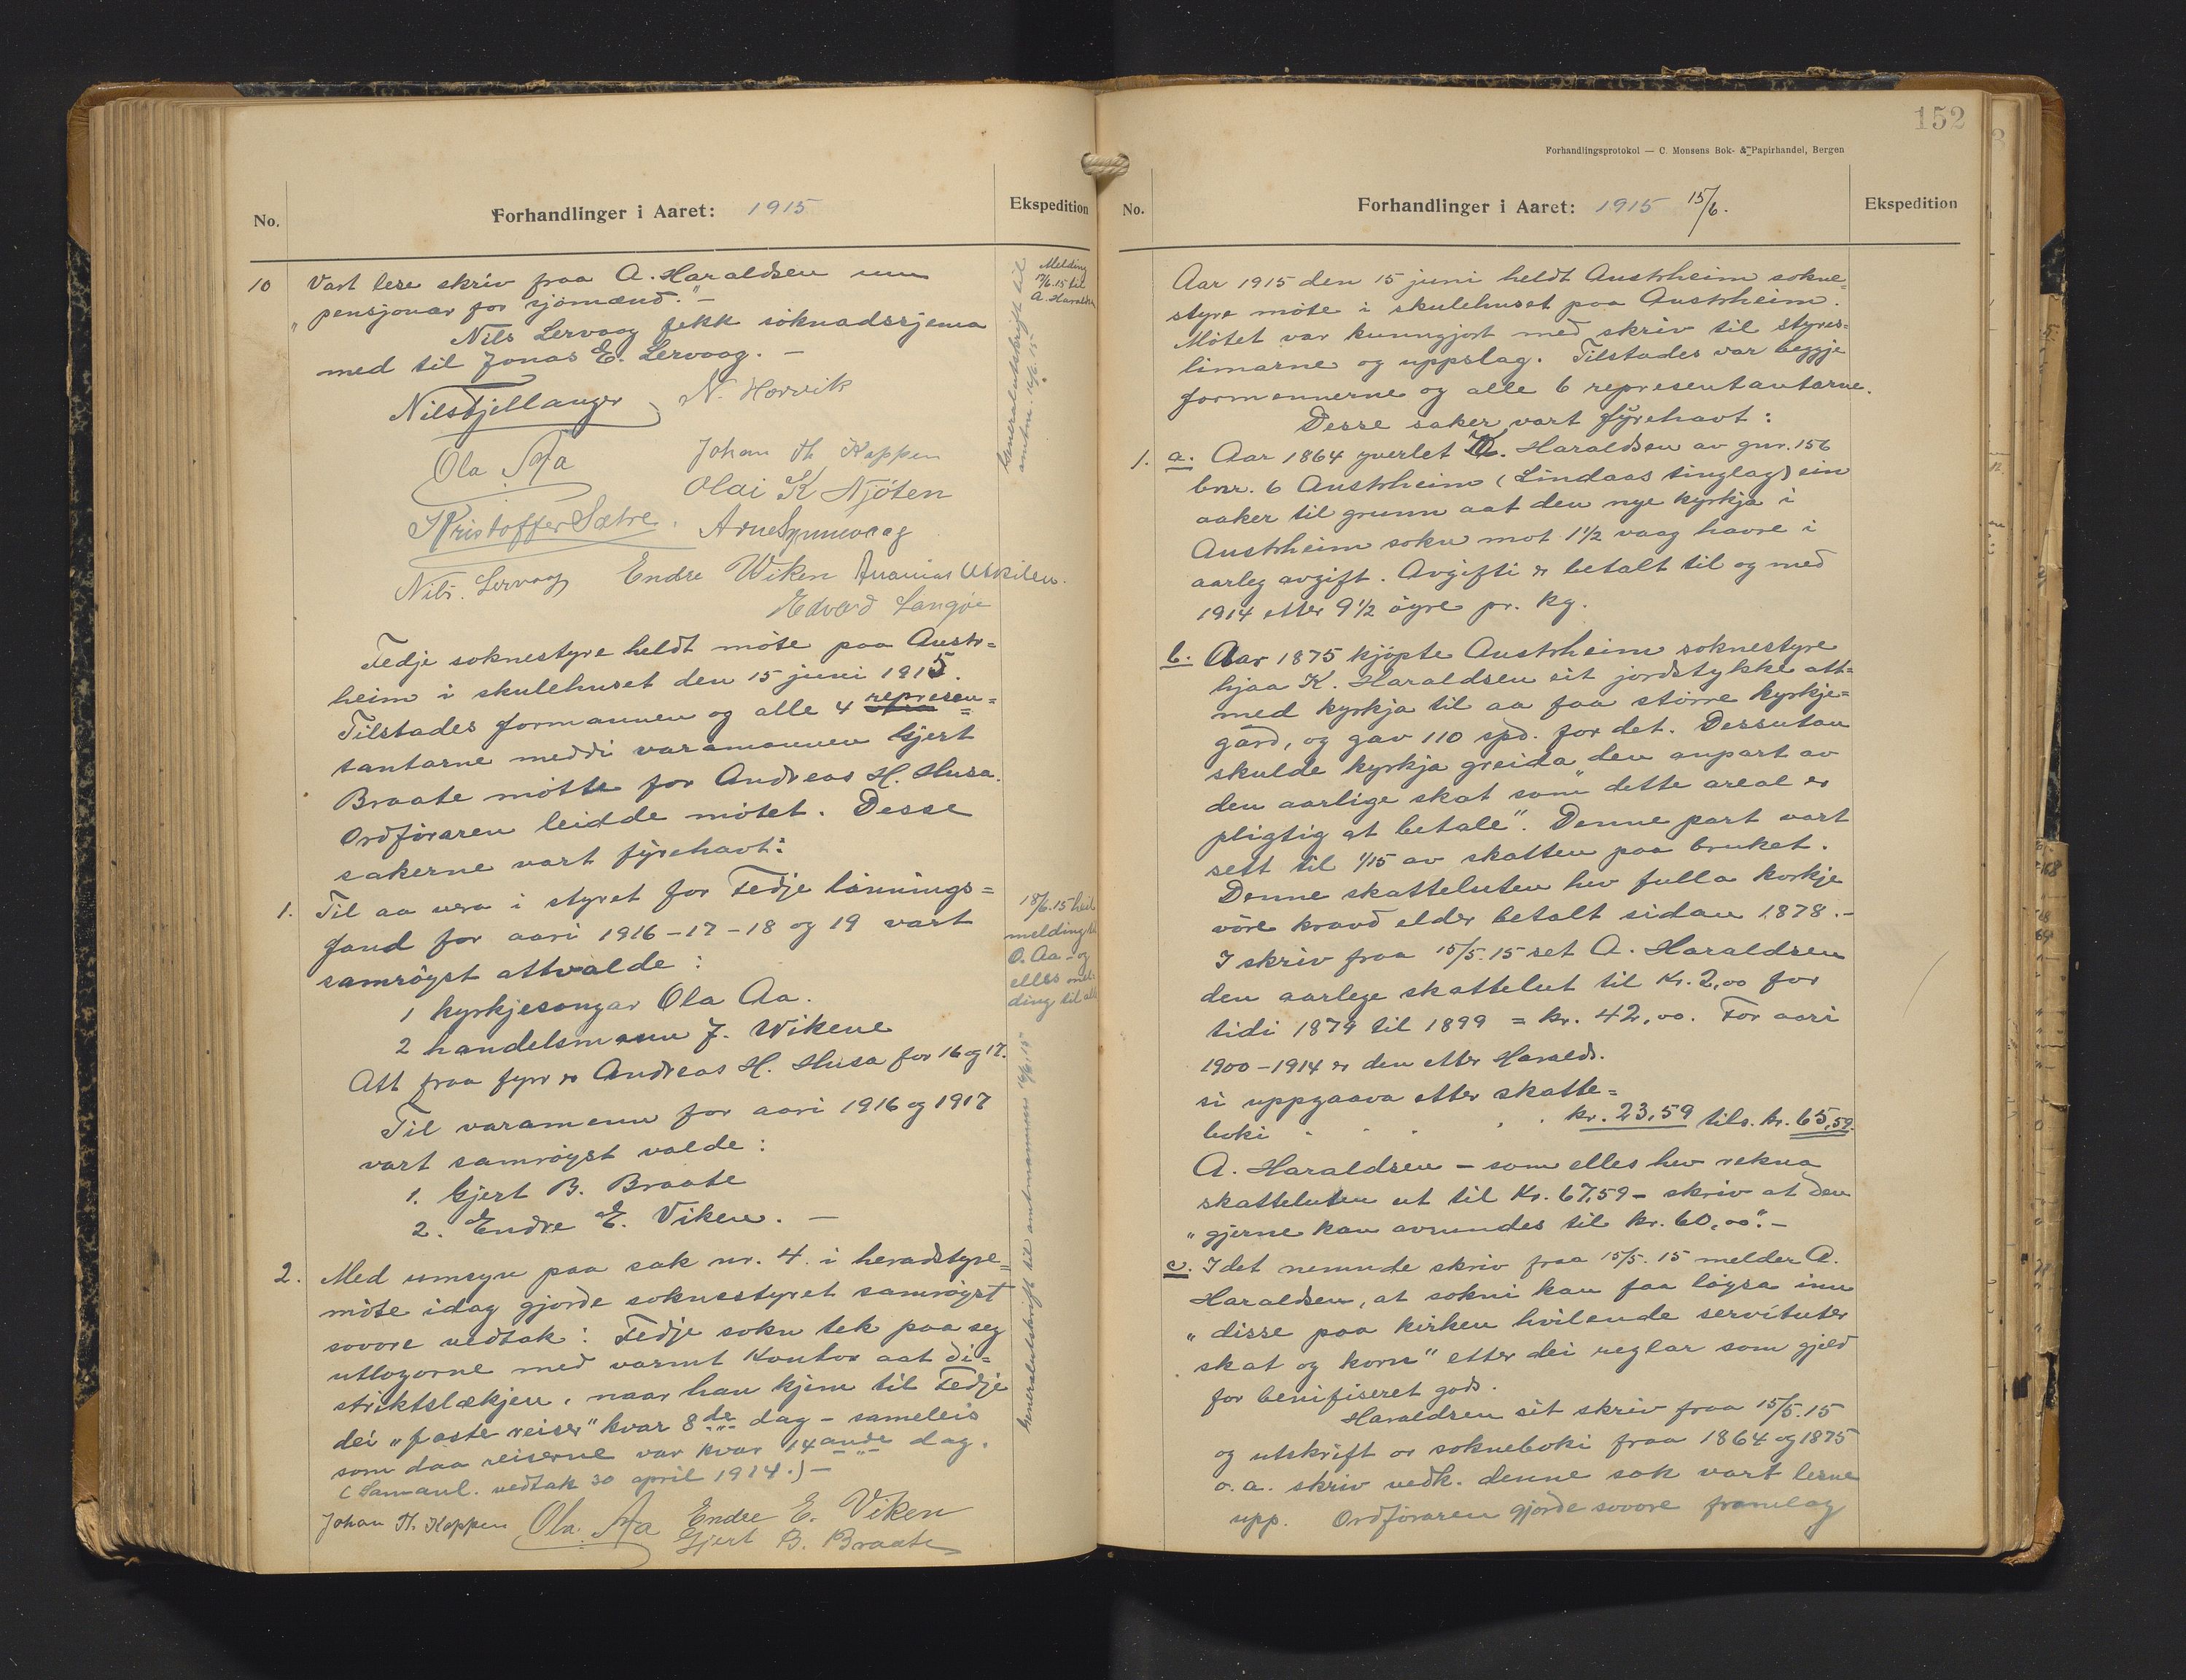 No.
Forhandlinger i Aaret: 1915
Ekspedition
10
Vart lese skriv fraa A. Haraldsen um
"pensjonar for sjömænd." –
Nils Lervaag fekk söknadsskjema
med til Jonas E. Lervaag. –
Nils Fjellanger
N. Horvik
Ola Aa
Johan Th Koppen
Olai K Njöten
Kristoffer Sætre.
Arne Synnevaag
Nils. Lervaag
Endre Wiken
Ananias Utkilen.
Edvard Langöe
Melding
17/6.15 til
A. Haraldsen
Generalutskrift til
amtm. 16/6.15
Fedje soknestyre heldt möte paa Austr=
heim i skulehuset den 15 juni 1915.
Tilstades formannen og alle 4 represen=
tantarne meddi varamannen Gjert
Braate mötte for Andreas H. Husa.
Ordföraren leidde mötet. Desse
sakerne vart fyrehavt:
1. Til aa vera i styret for Fedje lönnings=
fond for aari 1916-17-18 og 19 vart
samröyst attvalde:
1 kyrkjesongar Ola Aa.
2 handelsmann J. Wikene
Att fraa fyrr er Andreas H. Husa for 16 og 17.
Til varamenn for aari 1916 og 1917
vart samröyst valde:
1. Gjert B. Braate
2. Endre E. Viken. –
18/6.15 heil
melding til
O. Aa – og
elles mel-
ding til alle
Generalutskrift til amtmannen 16/6.15
2. Med umsyn paa sak nr. 4 i heradstyre=
möte idag gjorde soknestyret samröyst
sovore vedtak: Fedje sokn tek paa seg
utlogorne med varmt kontor aat di=
striktslækjen, naar han kjem til Fedje
dei "faste reiser" kvar 8de dag – sameleis
som daa reiserne var kvar 14ande dag.
(Samanl. vedtak 30 april 1914.) –
Johan Th. Koppen
Ola. Aa
Endre E. Viken
Gjert B. Braate
152
Forhandlingsprotokol — C. Monsens Bok- & Papirhandel, Bergen
No.
Forhandlinger i Aaret: 1915 15/6.
Ekspedition
Aar 1915 den 15 juni heldt Austrheim sokne=
styre möte i skulehuset paa Austrheim.
Mötet var kunngjort med skriv til styres=
limarne og uppslag. Tilstades var beggje
formennerne og alle 6 representantarne.
Desse saker vart fyrehavt:
1. a. Aar 1864 yverlet K. Haraldsen av gnr. 156
bnr. 6 Austrheim (Lindaas tinglag) ein
aaker til grunn aat den nye kyrkja i
Austrheim sokn mot 1½ vaag havre i
aarleg avgift. Avgifti er betalt til og med
1914 etter 9½ öyre pr. kg.
b. Aar 1875 kjöpte Austrheim soknestyre
hjaa K. Haraldsen eit jordstykke att=
med kyrkja til aa faa större kyrkje=
gard, og gav 110 spd. for det. Dessutan
skulde kyrkja greida den anpart av
den aarlige skat som "dette areal er
pligtig at betale". Denne part vart
sett til 1/15 av skatten paa bruket.
Denne skatteluten hev fulla korkje
vöre kravd elder betalt sidan 1878. –
I skriv fraa 15/5.15 set A. Haraldsen
den aarlege skattelut til Kr. 2,00 for
tidi 1879 til 1899 = kr. 42,00. For aari
1900-1914 er den etter Haralds.
si uppgaava etter skatte=
boki . . . . . kr. 23,59 tils. kr. 65,59.
A. Haraldsen – som elles hev rekna
skatteluten ut til Kr. 67,59 – skriv at den
"gjerne kan avrundes til kr. 60,00". –
c. I det nemnde skriv fraa 15/5.15 melder A.
Haraldsen, at sokni kan faa löysa inn
"disse paa kirken hvilende servituter
skat og korn" etter dei reglar som gjeld
for benifiseret gods.
Haraldsen sit skriv fraa 15/5.15
og utskrift or sokneboki fraa 1864 og 1875
o. a. skriv vedk. denne sak vart lesne
upp. Ordföraren gjorde sovore framlag